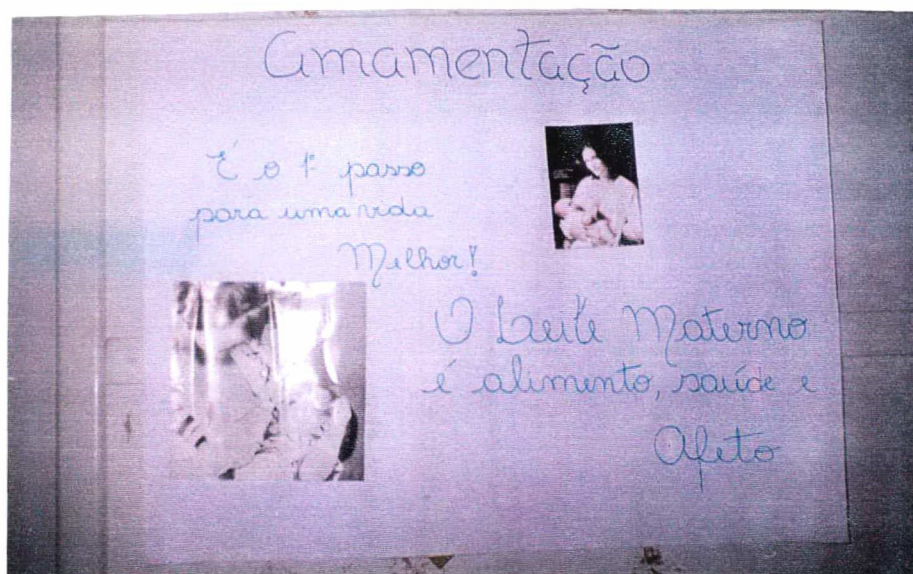 Amamentação
É o 1º passo
para uma vida
Melhor!
O Leite Materno
é alimento, saúde e
Afeto